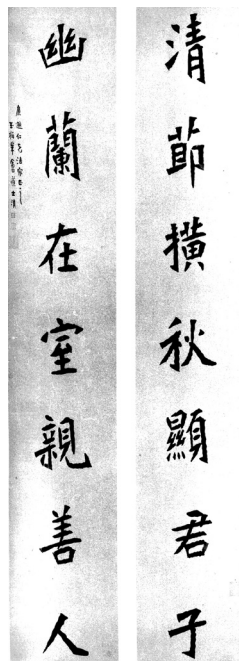 清節擯秋顯君子
幽蘭在室親善人